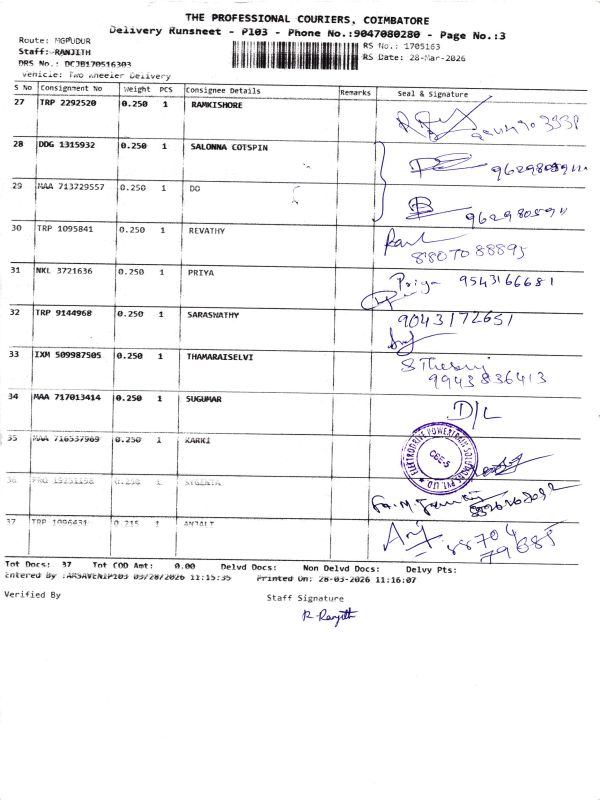 THE PROFESSIONAL COURIERS, COIMBATORE
Delivery Runsheet - P103 - Phone No.:9047080280 - Page No.:3
Route: MGPUDUR
RS No.: 1705163
Staff: RANJITH
RS Date: 28-Mar-2026
DRS No.: DCJB170516303
Vehicle: Two Wheeler Delivery
S No Consignment No Weight PCS Consignee Details Remarks Seal & Signature
27 TRP 2292520 0.250 1 RAMKISHORE
28 DDG 1315932 0.250 1 SALONNA COTSPIN
29 MAA 713729557 0.250 1 DO
9629805911
30 TRP 1095841 0.250 1 REVATHY
8807088895
31 NKL 3721636 0.250 1 PRIYA Priya 9543166681
32 TRP 9144968 0.250 1 SARASWATHY 9043172651
33 IXM 509987505 0.250 1 THAMARAISELVI
9943836413
34 MAA 717013414 0.250 1 SUGUMAR D/L
35 MAA 716537989 0.250 1 KARKI
ELEKTRODRIVE POWERTRAIN SOLUTIONS PVT. LTD
CBE-5
36 0.250 1 SYGENTA
37 TRP 1096431 0.215 1 ANJALI
88704
79685
Tot Docs: 37 Tot COD Amt: 0.00 Delvd Docs: Non Delvd Docs: Delvy Pts:
Entered By :ARSAVENIP103 03/28/2026 11:15:35 Printed On: 28-03-2026 11:16:07
Verified By
Staff Signature
R. Ranjith